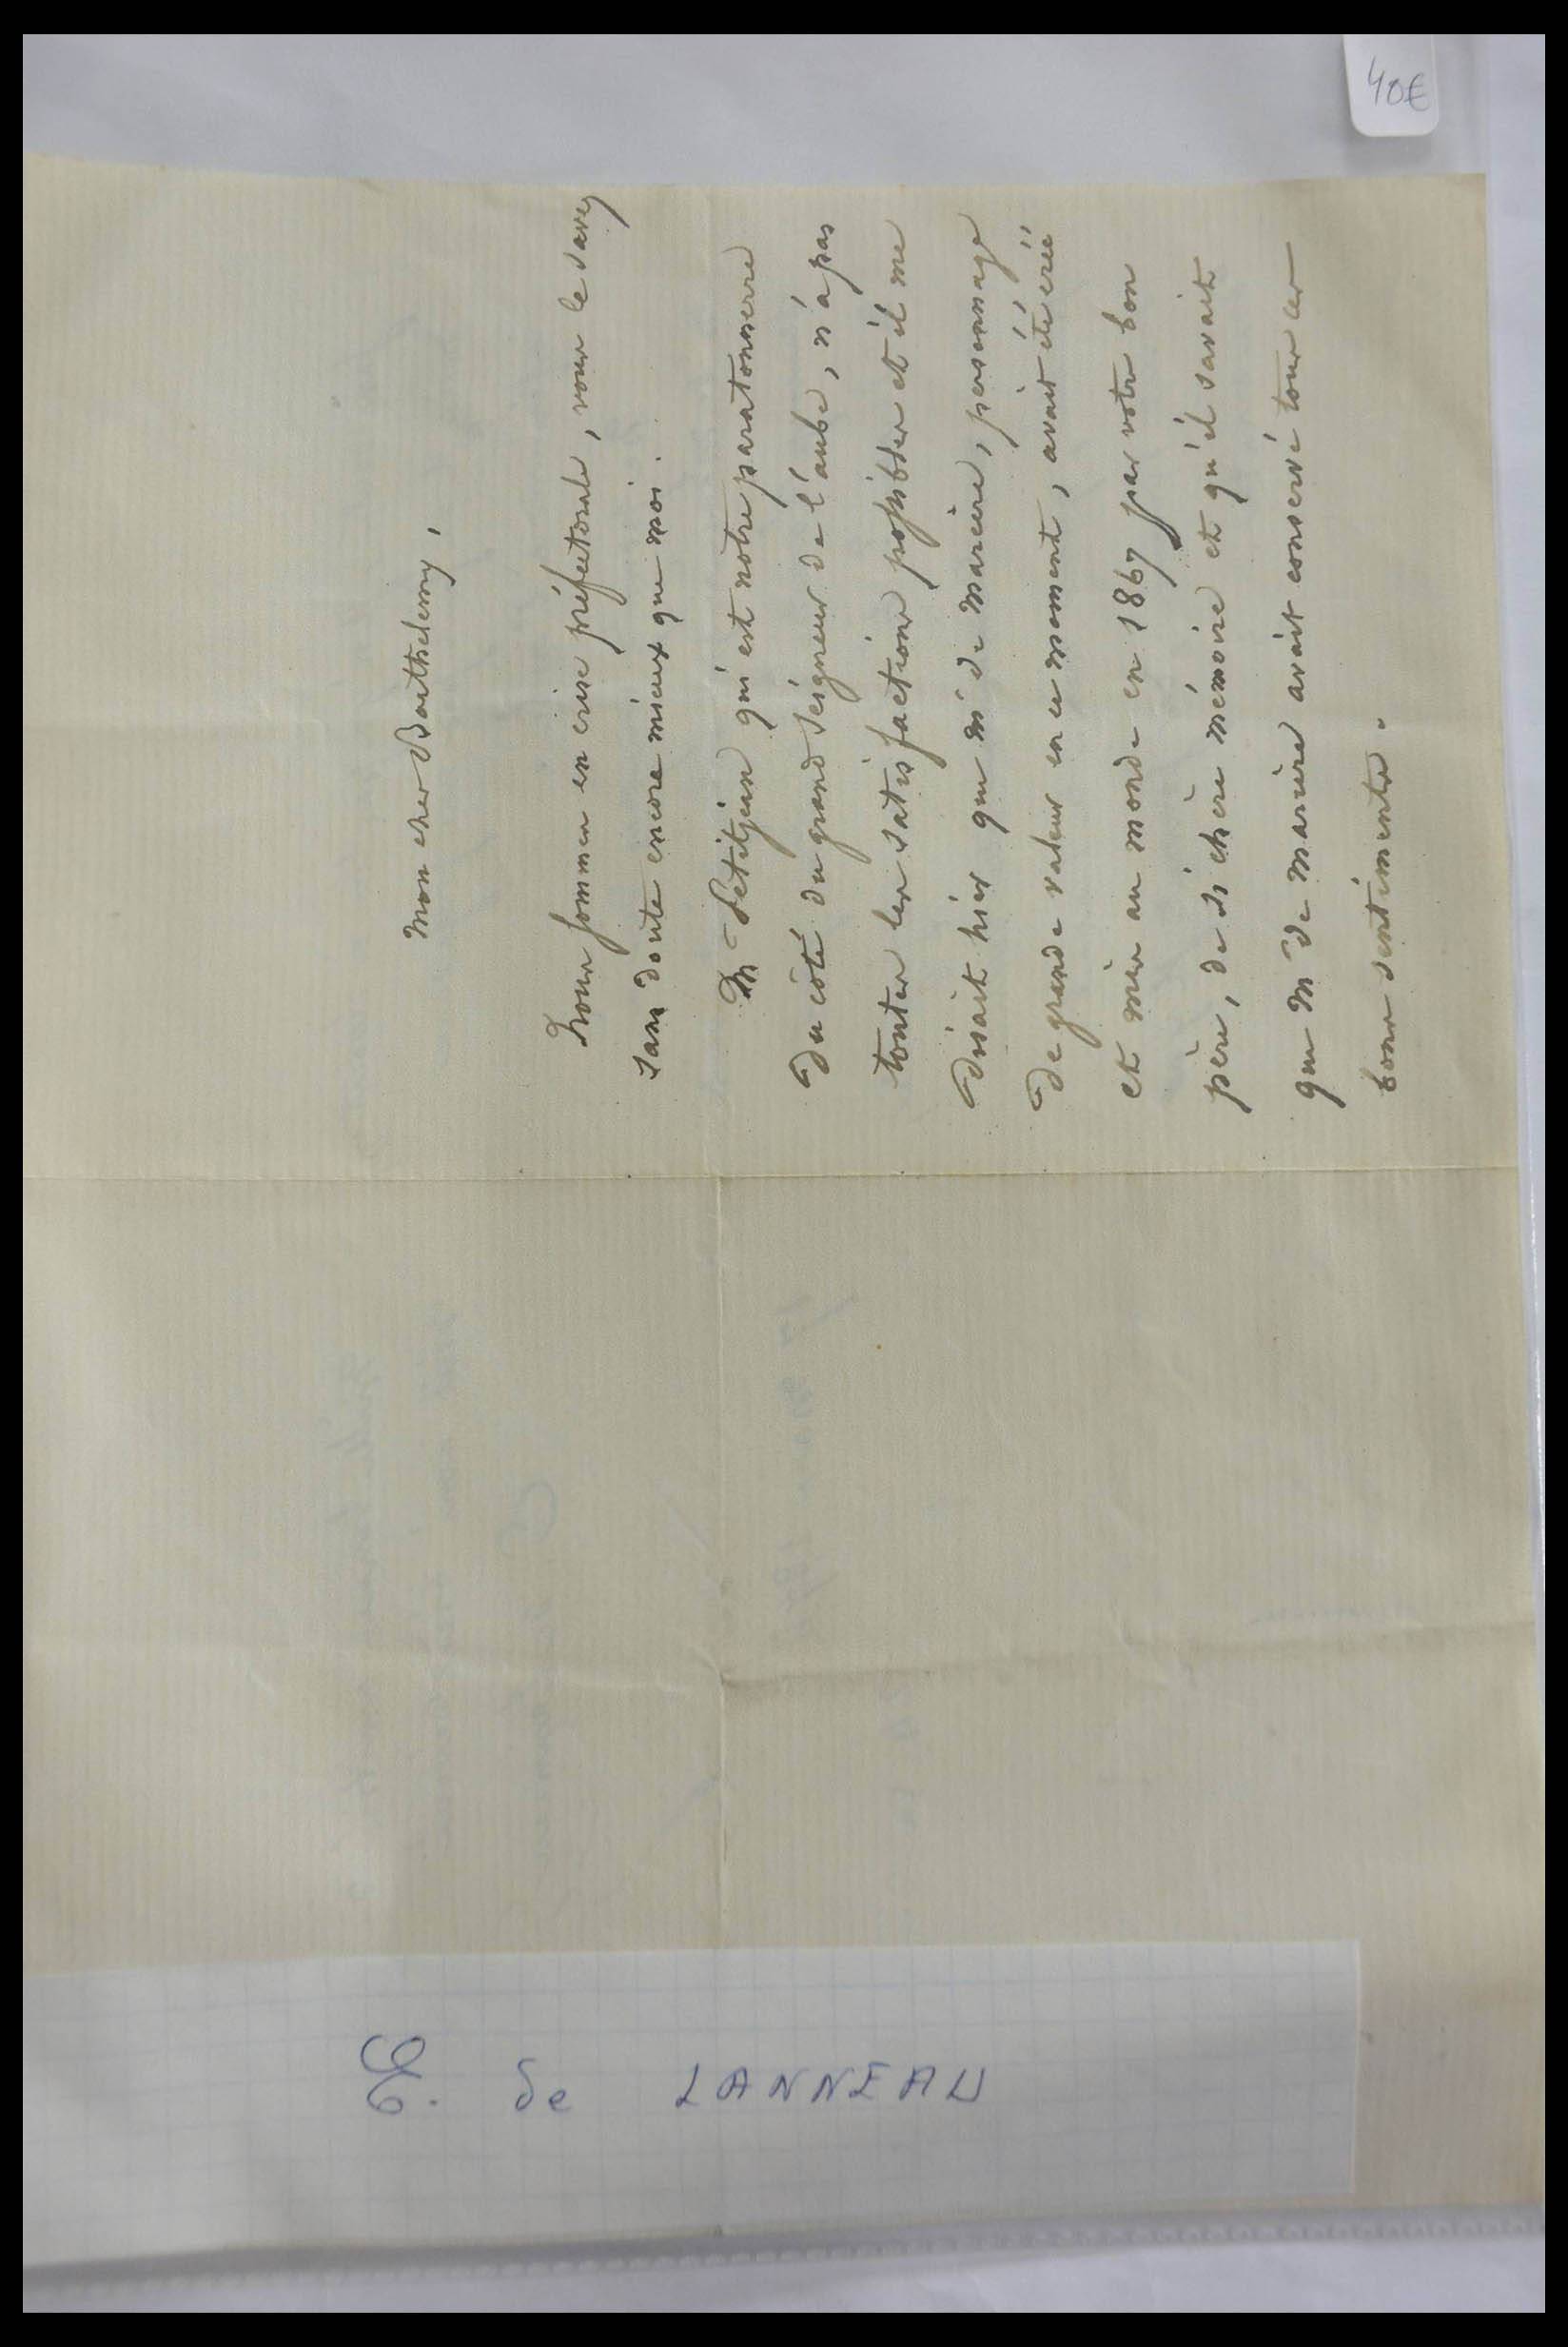 40€
Mon cher Barthelemy,
Nous sommes en crise préfectorale, vous le savez
sans doute encore mieux que moi.
M Petitjean qui est notre paratonnerre
du côté du grand seigneur de l'aube, n'a pas
toutes les satisfactions possibles et il me
disait hier que M de Marcère, personnage
de grande valeur en ce moment, avait été créé
et mis au monde en 1867 par votre bon
père, de si chère mémoire et qu'il savait
que M de Marcère avait conservé tous ces
bons sentiments.
E. de LANNEAU